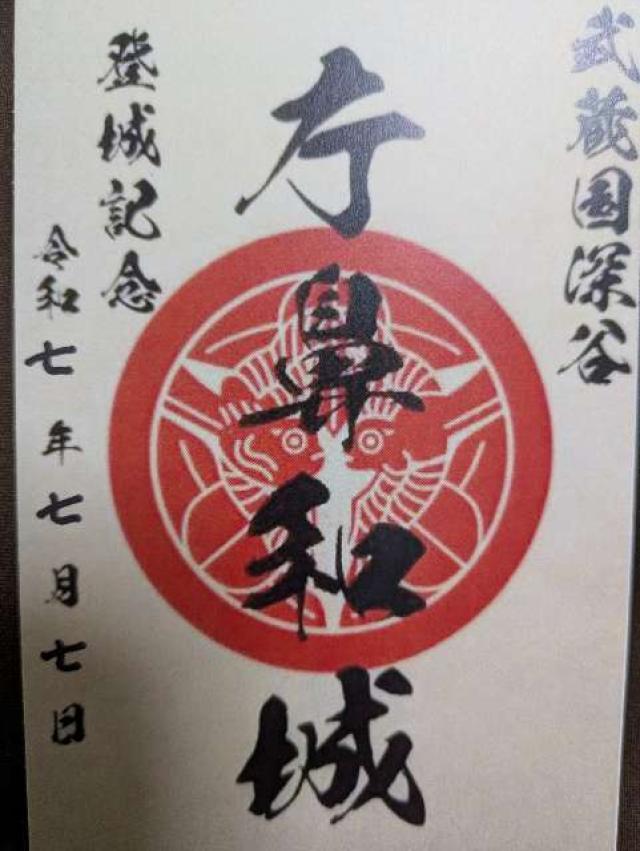 武蔵国深谷
庁鼻和城
登城記念
令和七年七月七日